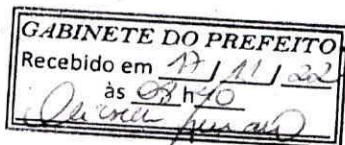 GABINETE DO PREFEITO
Recebido em 17/11/22
às h40